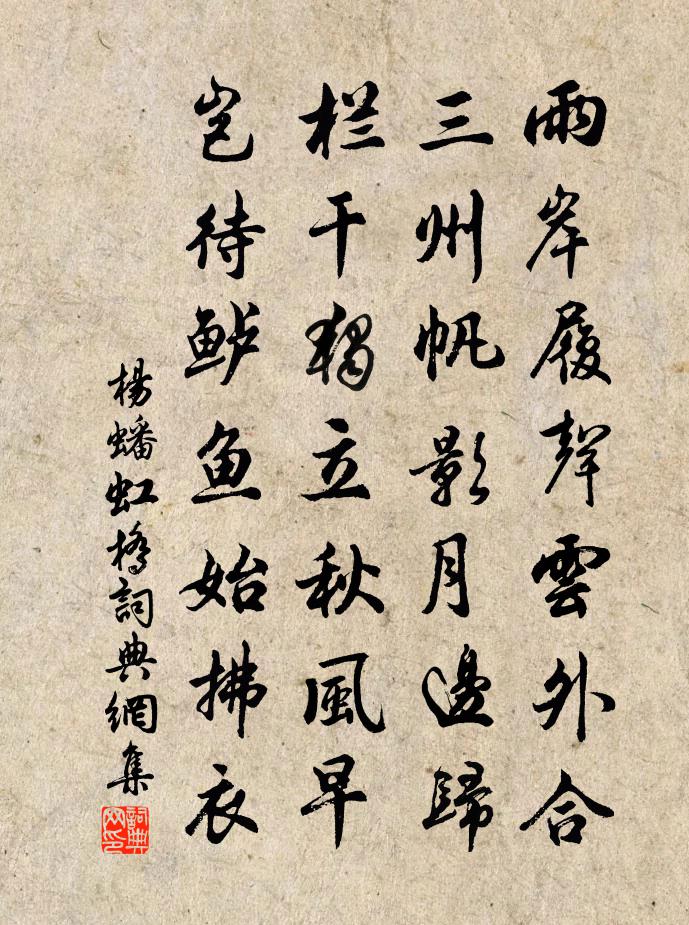 兩岸履聲雲外合
三州帆影月邊歸
栏干獨立秋風早
岂待鲈鱼始拂衣
楊蟠虹橋詞典網集
詞典网印